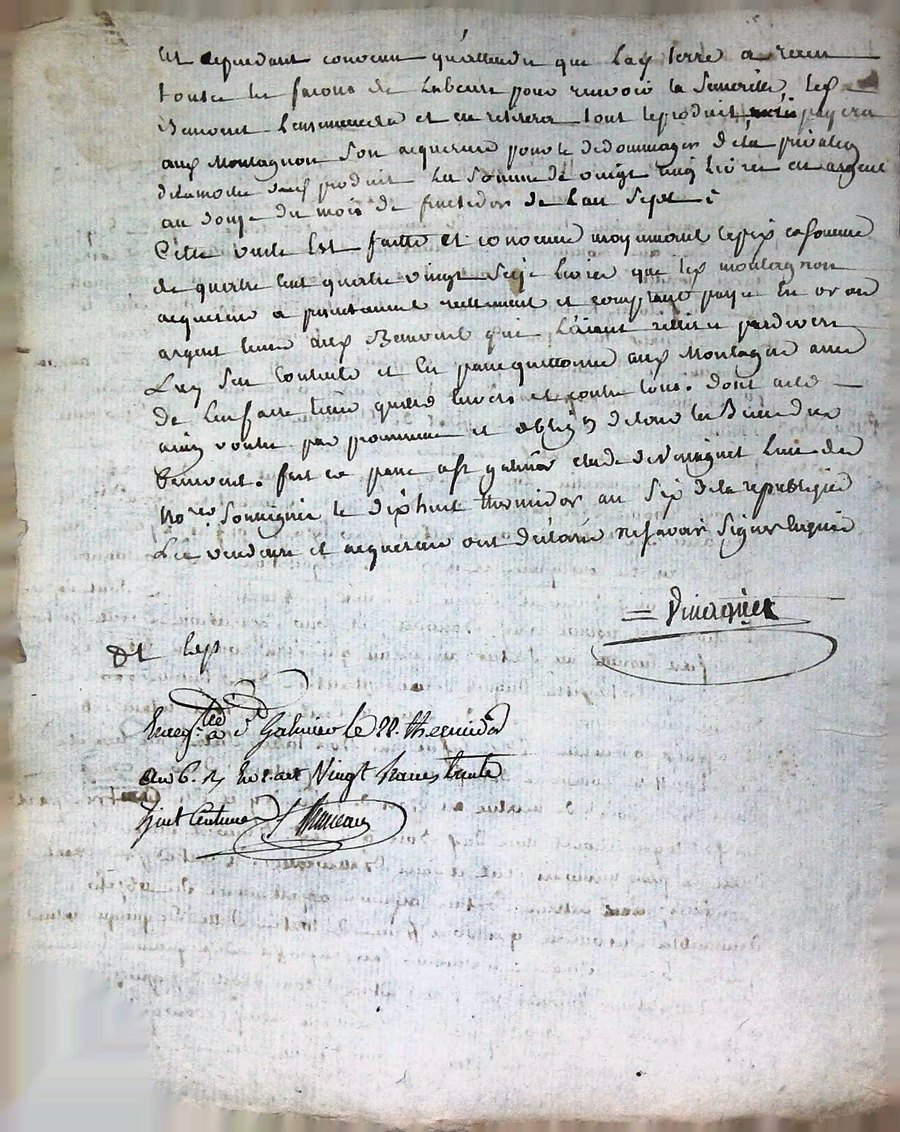 Est cependant convenu qu'attendu que lad terre a recu
toutes les facons de labeurs pour recevoir la semence, led
Benevent l'ensemencera et en retirera tout le produit, payera
aud Montagnon son acquereur pour le dedommager de la privation
de la moitié dud produit la somme de vingt cinq livres en argent
au douze du mois de fructidor de l'an sept :
Cette vente est faitte et convenue moyennant le prix et somme
de quatre cent quatre vingt seize livres que led montagnon
acquereur a presentement reellement et comptant payé en or ou
argent aud Benevent qui l'aiant retiré pardevers
Luy s'en contente et en quittance aud Montagnon avec
de l'en faire tenir quitte envers et contre tous. Dont acte
ainsy voulu par promesse et oblig^on de tous les Biens dud
Benevent. fait et passé a S^t galmier etude de Vinagnet l'un des
No^res soussignés le dixhuit thermidor an six de la republique
Les vendeur et acquereur ont déclaré ne savoir signer enquis
= Vinagnet
Et led
Enreg^tré a S^t Galmier le 22. thermidor
an 6. R vingt francs trente
huit Centimes